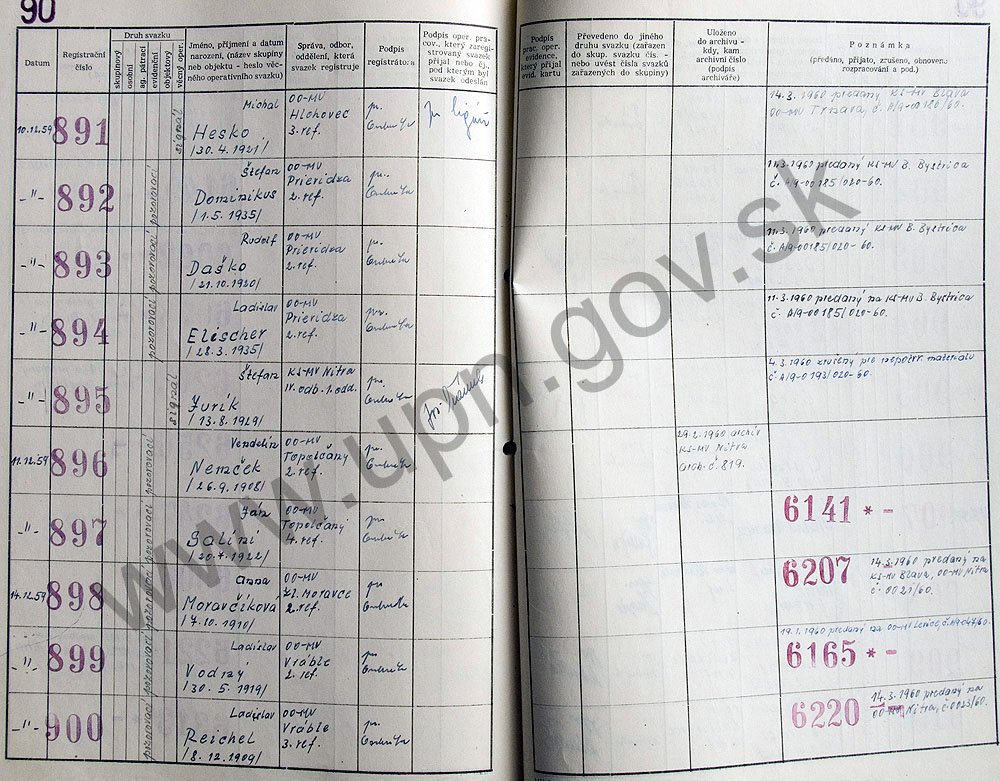 90
Datum
Registrační číslo
Druh svazku
skupinový
osobní
ag. pátrací
evidenční
objektový
věcný oper.
Jméno, příjmení a datum
narození, (název skupiny
neb objektu - heslo věc-
ného operativního svazku)
Správa, odbor,
oddělení, která
svazek registruje
Podpis
registrátora
Podpis oper. pra-
cov., který zaregi-
strovaný svazek
přijal nebo čj.,
pod kterým byl
svazek odeslán
Podpis
prac. oper.
evidence,
který přijal
evid. kartu
Převedeno do jiného
druhu svazku (zařazen
do skup. svazku čís. -
nebo uvést čísla svazků
zařazených do skupiny)
Uloženo
do archivu -
kdy, kam
archivní číslo
(podpis
archiváře)
Poznámka
(předáno, přijato, zrušeno, obnoveno,
rozpracování a pod.)
10.12.59 891 signál Michal
Hesko
/30.4.1921/
OO-MV
Hlohovec
3. ref.
14.3.1960 predaný KS-MV Blava
OO-MV Trnava, č. A/9-00186/60.
-"- 892 pozorovací Štefan
Dominikus
/1.5.1935/
OO-MV
Prievidza
2. ref.
11.3.1960 predaný KS-MV B. Bystrica
č. A/9-00185/020-60.
-"- 893 pozorovací Rudolf
Daško
/21.10.1930/
OO-MV
Prievidza
2. ref.
11.3.1960 predaný KS-MV B. Bystrica
č. A/9-00185/020-60.
-"- 894 pozorovací Ladislav
Elischer
/28.3.1935/
OO-MV
Prievidza
2. ref.
11.3.1960 predaný na KS-MV B. Bystrica
č. A/9-00185/020-60.
-"- 895 signál Štefan
Jurík
/13.8.1929/
KS-MV Nitra
IV. odb. 1. odd.
4.3.1960 zrušený pre nepotvr. materialu
č. A/9-0193/020-60.
11.12.59 896 pozorovací Vendelín
Nemček
/26.9.1908/
OO-MV
Topoľčany
2. ref.
29.2.1960 archív
KS-MV Nitra
arch. č. 819.
-"- 897 pozorovací Ján
Galini
OO-MV
Topoľčany
4. ref.
6141 * -
14.12.59 898 pozorovací Anna
Moravčíková
/7.10.1910/
OO-MV
Zl. Moravce
2. ref.
6207 - 14.3.1960 predaný na
KS-MV Blava, OO-MV Nitra
č. 0021/60.
-"- 899 pozorovací Ladislav
Vodný
/30.5.1919/
OO-MV
Vráble
2. ref.
19.1.1960 predaný na OO-MV Levice,
6165 * -
-"- 900 pozorovací Ladislav
Reichel
/8.12.1909/
OO-MV
Vráble
3. ref.
6220 - 14.3.1960 predaný na
OO-MV, Nitra, č. 0023/60.
www.upn.gov.sk